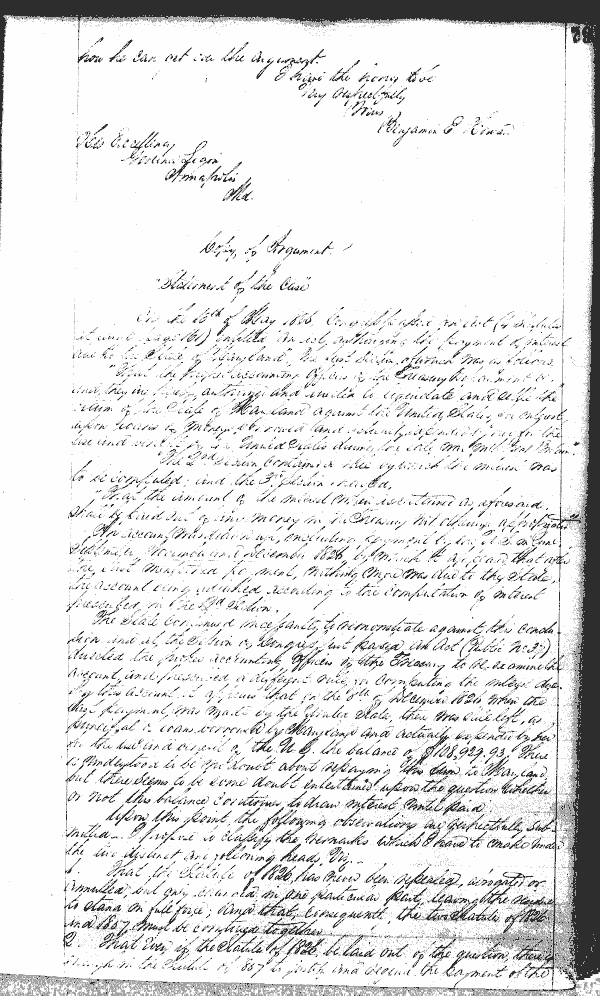 how he can act in the argument.
I have the honor to be
Very respectfully
Yours
Benjamin C Howard
His Excellency
Governor Ligon
Annapolis
Md.
Copy of Argument.
"Statement of the Case"
On the 13th of May 1826, Congress passed an act (4 Statutes
at large, page 161) entitled "An act authorizing the payment of interest
due to the State of Maryland", the first section of which was as follows.
"That the proper accounting officers of the Treasury Department be,
and they are hereby, authorized and directed to liquidate and settle the
claim of the State of Maryland against the United States, for interest
upon loans of money borrowed and actually expended by her for the
use and benefit of the United States during the late war with Great Britain".
The 2nd section contained the rule by which the interest was
to be computed; and the 3rd section enacted,
"That the amount of the interest when ascertained as aforesaid,
shall be paid out of any money in the Treasury not otherwise appropriated".
An account was drawn up, and
December 1826, by which it appeared that after
the last mentioned payment, nothing more was due to the State,
the account being adjusted according to the computation of interest
prescribed in the 2nd section.
The State continued incessantly to remonstrate against this conclu-
sion and at the session of Congress just passed an Act (Public No. 37)
directed the proper accounting officers of the Treasury to re-examine the
account, and prescribed a different rule for computing the interest due.
By this account it appears that on the of December 1826 when the
last payment was made by the United States, there was due left, as
principal of loans borrowed by Maryland and actually expended by her
for the use and benefit of the U. S. the balance of $108,929.93. There
is understood to be no doubt about repaying this sum to Maryland,
but there seems to be some doubt entertained upon the question whether
or not this balance continues to draw interest until paid.
Upon this point the following observations are respectfully sub-
mitted. I propose to classify the remarks which I have to make under
the two distinct and following heads, Viz.
1. That the Statute of 1826, has never been repealed, abrogated or
annulled but only altered in one particular point, leaving the residue
to stand in full force; and that, consequently, the two statutes of 1826
and 1857, must be construed together.
2. That even if the Statute of 1826, be laid out of the question, there is
enough in the Statute of 1857 to justify and require the payment of the